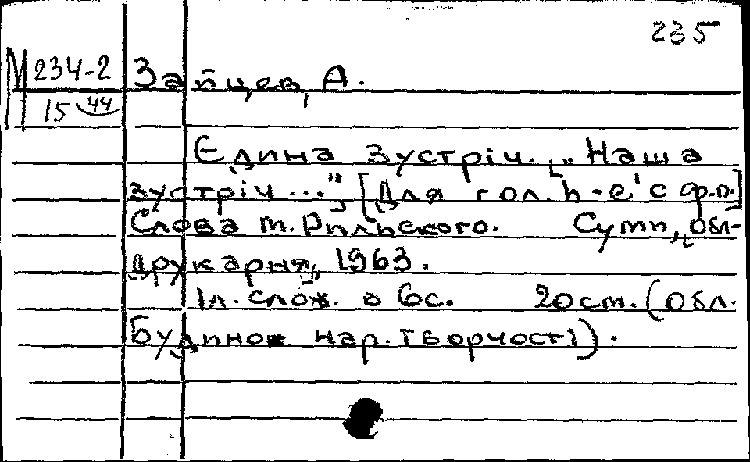 235
М 234-2
15 44
Зайцев, А.
Єдина зустріч. „Наша
зустріч..." [Для гол. h-e' с ф.п.]
Слова т. Рильского. Суми, обл-
друкарня, 1963.
1л. слож. в 6с. 20 см. (Обл.
Будинок нар. творчості).